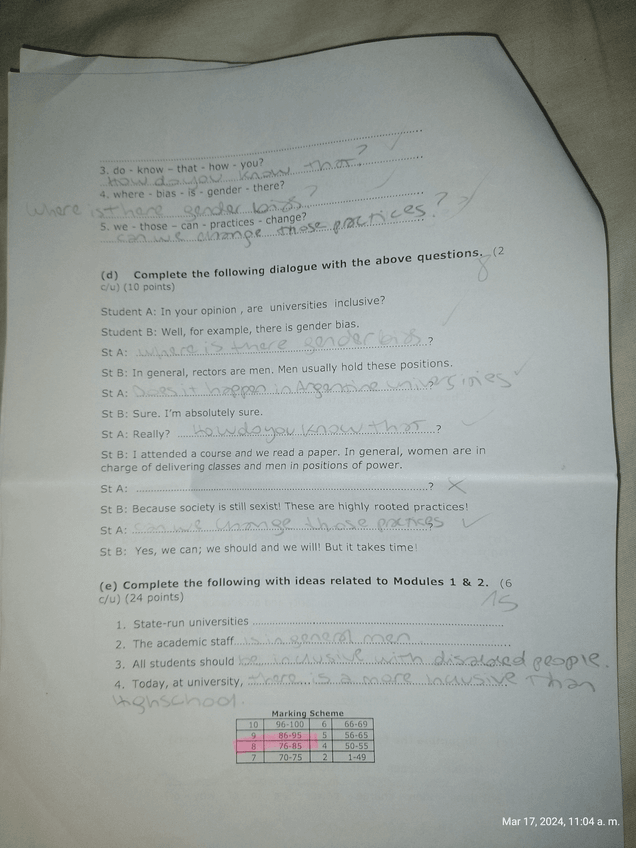 3. do - know – that - how - you?
How do you know that?
4. where - bias - is - gender - there?
Where is there gender bias?
5. we - those – can - practices - change?
can we change those practices?
(d) Complete the following dialogue with the above questions. (2
c/u) (10 points)
8
Student A: In your opinion , are universities inclusive?
Student B: Well, for example, there is gender bias.
St A: Where is there gender bias ?
St B: In general, rectors are men. Men usually hold these positions.
St A: Does it happen in Argentine universities
St B: Sure. I'm absolutely sure.
St A: Really? How do you know that ?
St B: I attended a course and we read a paper. In general, women are in
charge of delivering classes and men in positions of power.
St A: ?
St B: Because society is still sexist! These are highly rooted practices!
St A: can we change those practices
St B: Yes, we can; we should and we will! But it takes time!
(e) Complete the following with ideas related to Modules 1 & 2. (6
c/u) (24 points)
15
1. State-run universities
2. The academic staff is in general men
3. All students should be inclusive with disabled people.
4. Today, at university, there is a more inclusive than
Highschool.
Marking Scheme
10 96-100 6 66-69
9 86-95 5 56-65
8 76-85 4 50-55
7 70-75 2 1-49
Mar 17, 2024, 11:04 a. m.